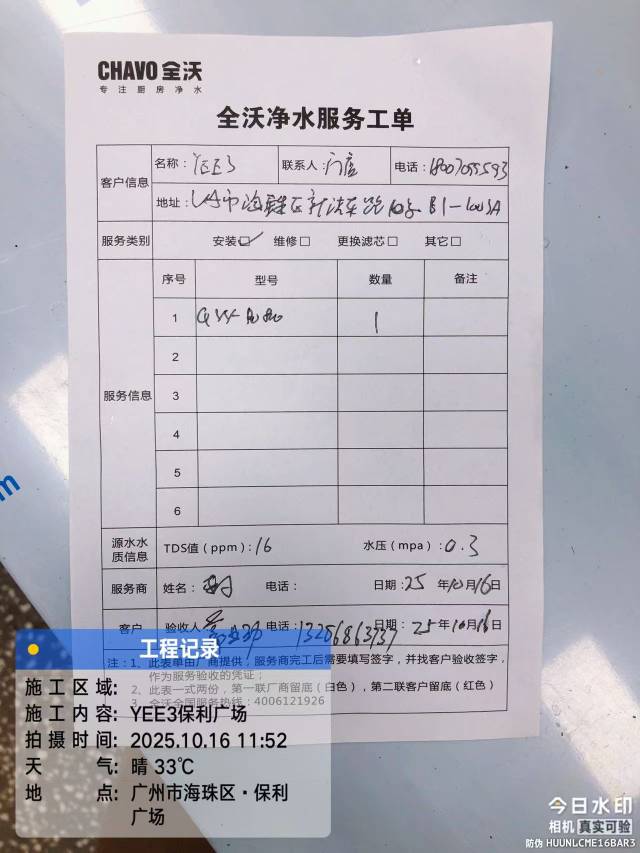 CHAVO 全沃
专注厨房净水
全沃净水服务工单
客户信息
名称: YEE3 联系人: 门店 电话:
地址:
服务类别 安装☑ 维修□ 更换滤芯□ 其它□
服务信息
序号 型号 数量 备注
1 1
2
3
4
5
6
源水水质信息 TDS值（ppm）: 16 水压（mpa）: 0.3
服务商 姓名: 电话: 日期: 25 年 10 月 16 日
客户 验收人 电话: 13286863737 日期: 25 年 10 月 16 日
注: 1、此表单由厂商提供, 服务商完工后需要填写签字, 并找客户验收签字,
作为服务验收的凭证;
2、此表一式两份, 第一联厂商留底 (白色), 第二联客户留底 (红色)
3、全沃全国服务热线: 4006121926
工程记录
施工区域:
施工内容: YEE3保利广场
拍摄时间: 2025.10.16 11:52
天 气: 晴 33℃
地 点: 广州市海珠区·保利
广场
今日水印
相机 真实可验
防伪 HUUNLCME16BAR3
m